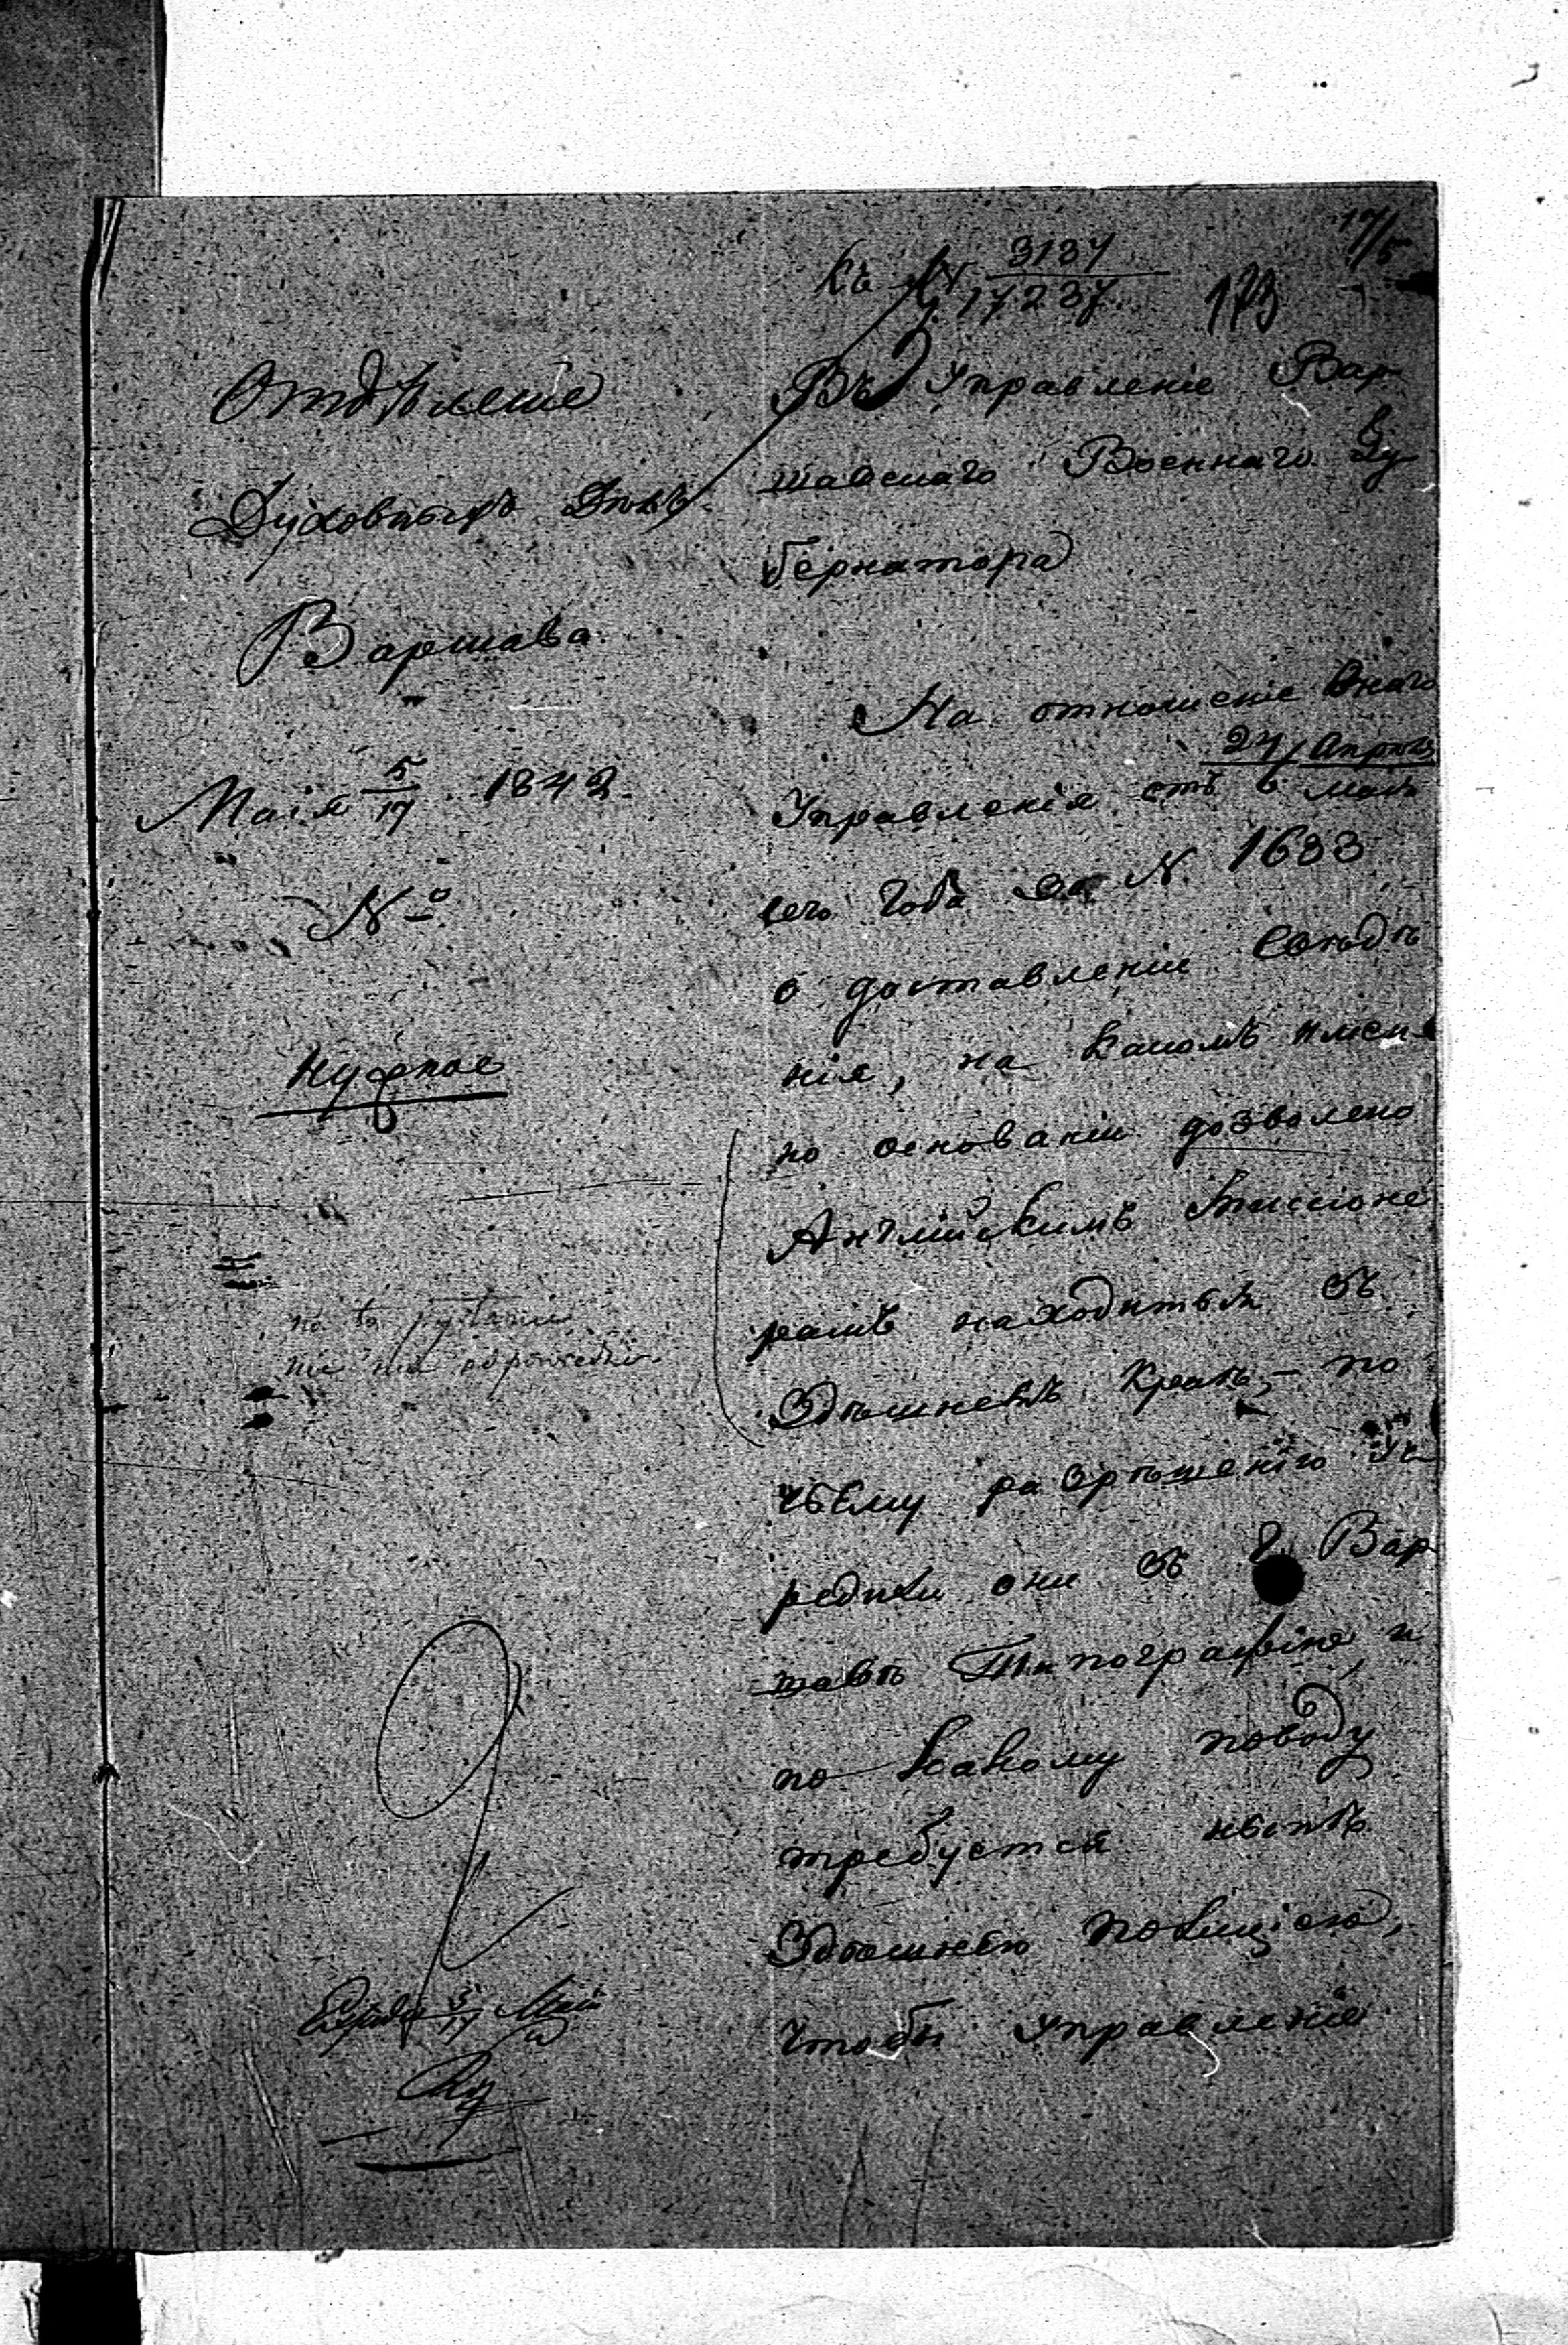 17/5
Къ N. 3137 / 17237
173
Отдѣленіе
Духовныхъ Дѣлъ
Варшава
Маія 5/17 1842.
N-о
Нужное
na to pytanie
nie ma odpowiedzi.
5/17 Маія
Въ Управленіе Вар
шавскаго Военнаго Гу
бернатора
На отношеніе Онаго
Управленія отъ 24 Апрѣля / 6 Маія
сего года за N. 1633
о доставленіи Свѣдѣ
нія, на какомъ имен
но основаніи дозволено
Англійскимъ Миссіоне
рамъ находиться въ
Здѣшнемъ Краѣ, – по
чьему разрѣшенію Уч
редили они въ г. Вар
шавѣ Типографію, и
по какому поводу
требуется нынѣ
Здѣшнею полиціею,
чтобы Управленіе